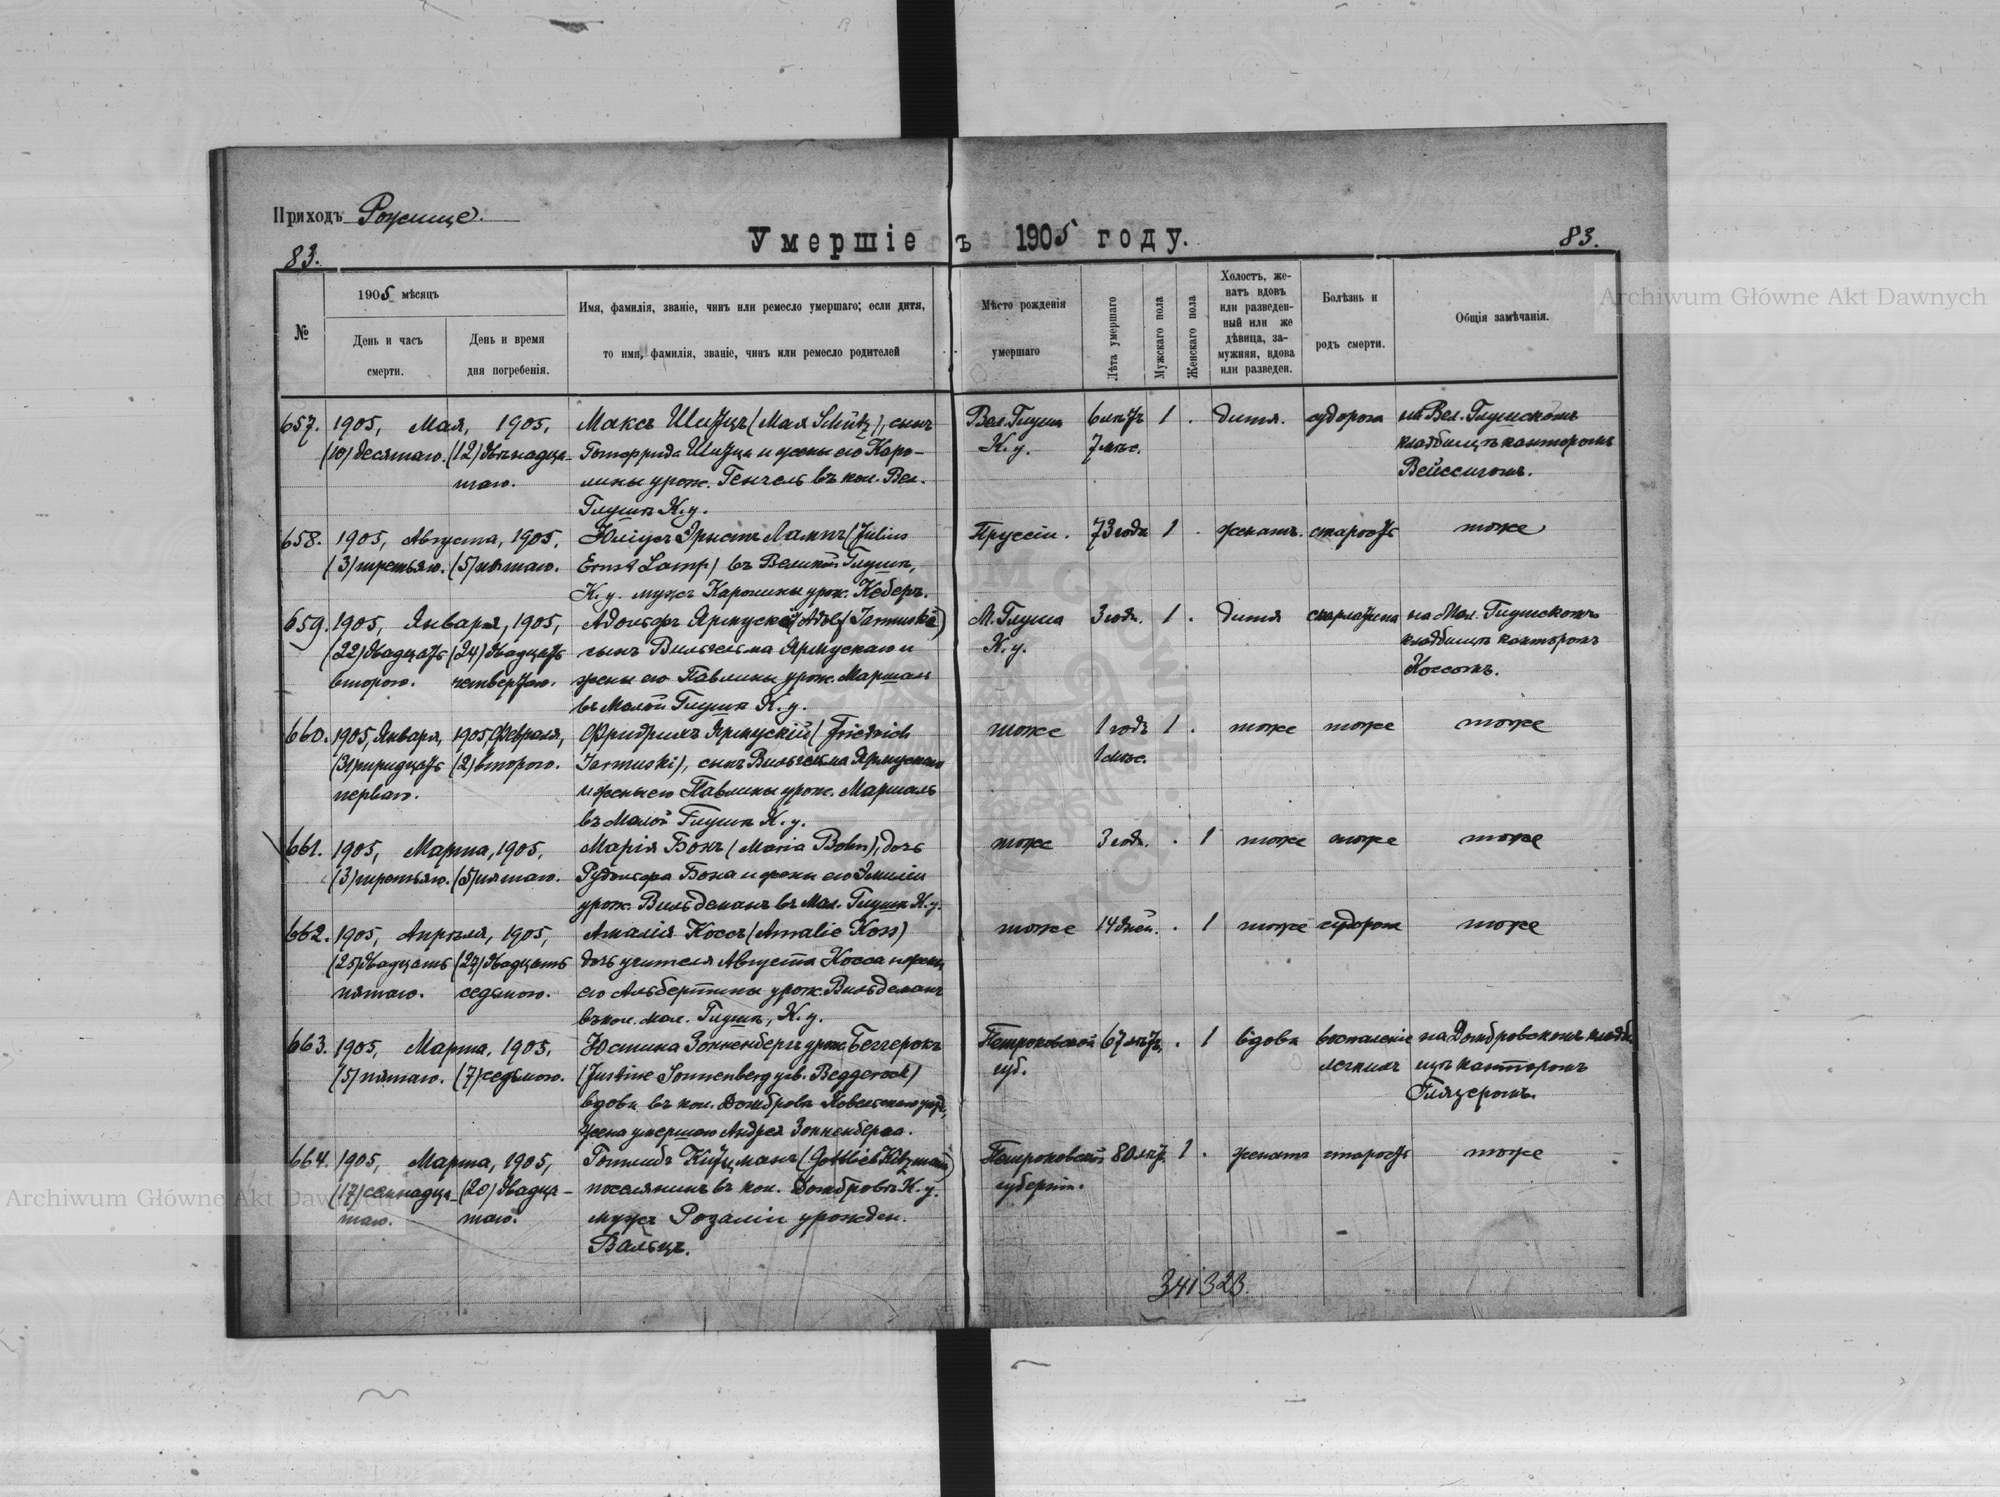 Приходъ Рожище.
Умершіе въ 1905 году.
83.
83.
№
1905 мѣсяцъ
День и часъ
смерти.
День и время
дня погребенія.
Имя, фамилія, званіе, чинъ или ремесло умершаго; если дитя,
то имя, фамилія, званіе, чинъ или ремесло родителей
Мѣсто рожденія
умершаго
Лѣта умершаго
Мужскаго пола
Женскаго пола
Холостъ, же-
натъ вдовъ
или разведен-
ный или же
дѣвица, за-
мужняя, вдова
или разведен.
Болѣзнь и
родъ смерти.
Общія замѣчанія.
657. 1905, Мая, 1905, Максъ Шитцъ (Max Schütz), сынъ Вел. Глуша 6 лѣтъ 1 . дитя. судорога на Вел. Глушскомъ
(10) десятаго. (12) двѣнадца- Готфрида Шитца и жены его Каро- К. у. 7 мѣс. кладбищѣ канторомъ
таго. лины урож. Генчель въ кол. Вел. Вейссигомъ.
Глуша К. у.
658. 1905, Августа, 1905, Юліусъ Эрнстъ Лампъ (Julius Пруссіи. 73 года 1 . женатъ. старость тоже
(3) третьяго. (5) пятаго. Ernst Lamp) въ Великой Глуша,
К. у. мужъ Каролины урож. Кеберъ.
659. 1905, Января, 1905, Адольфъ Ярмускій (Adolf Jarmuski) М. Глуша 3 года. 1 . дитя скарлатина на Мал. Глушскомъ
(22) двадцать (24) двадцать сынъ Вильгельма Ярмускаго и К. у. кладбищѣ канторомъ
второго. четвертаго. жены его Павлины урож. Маршаль Коссомъ.
въ Малой Глуша К. у.
660. 1905, Января, 1905, Февраля, Фридрихъ Ярмускій (Friedrich тоже 1 годъ 1 . тоже тоже тоже
(31) тридцать (2) второго. Jarmuski), сынъ Вильгельма Ярмускаго 1 мѣс.
перваго. и жены его Павлины урож. Маршаль
въ Малой Глуша К. у.
661. 1905, Марта, 1905, Марія Бонъ (Maria Bohn), дочь тоже 3 года. . 1 тоже тоже тоже
(3) третьяго. (5) пятаго. Рудольфа Бона и жены его Эмиліи
урож. Вильдеманъ въ Мал. Глуша К. у.
662. 1905, Апрѣля, 1905, Амалія Коссъ (Amalie Koss) тоже 14 дней. . 1 тоже судорога тоже
(25) двадцать (27) двадцать дочь учителя Августа Косса и жены
пятаго. седьмого. его Альбертины урож. Вильдеманъ
въ кол. Мал. Глуша, К. у.
663. 1905, Марта, 1905, Юстина Зонненбергъ урож. Беггерокъ Петроковской 67 лѣтъ, . 1 вдова воспаленіе на Домбровскомъ кладби-
(5) пятаго. (7) седьмого. (Justine Sonnenberg geb. Beggerock) губ. легкихъ щѣ канторомъ
вдова въ кол. Домброва Ковельскаго уѣзда, Глязеромъ.
жена умершаго Андрея Зонненберга.
664. 1905, Марта, 1905, Готлибъ Китцманъ (Gottlieb Kitzmann) Петроковской 80 лѣтъ 1 . женатъ старость тоже
(17) семнадца- (20) двадца- поселянинъ въ кол. Домброва К. у. губерніи.
таго. таго. мужъ Розаліи урожден.
Вальцъ.
341323.
Archiwum Główne Akt Dawnych
Archiwum Główne Akt Dawnych